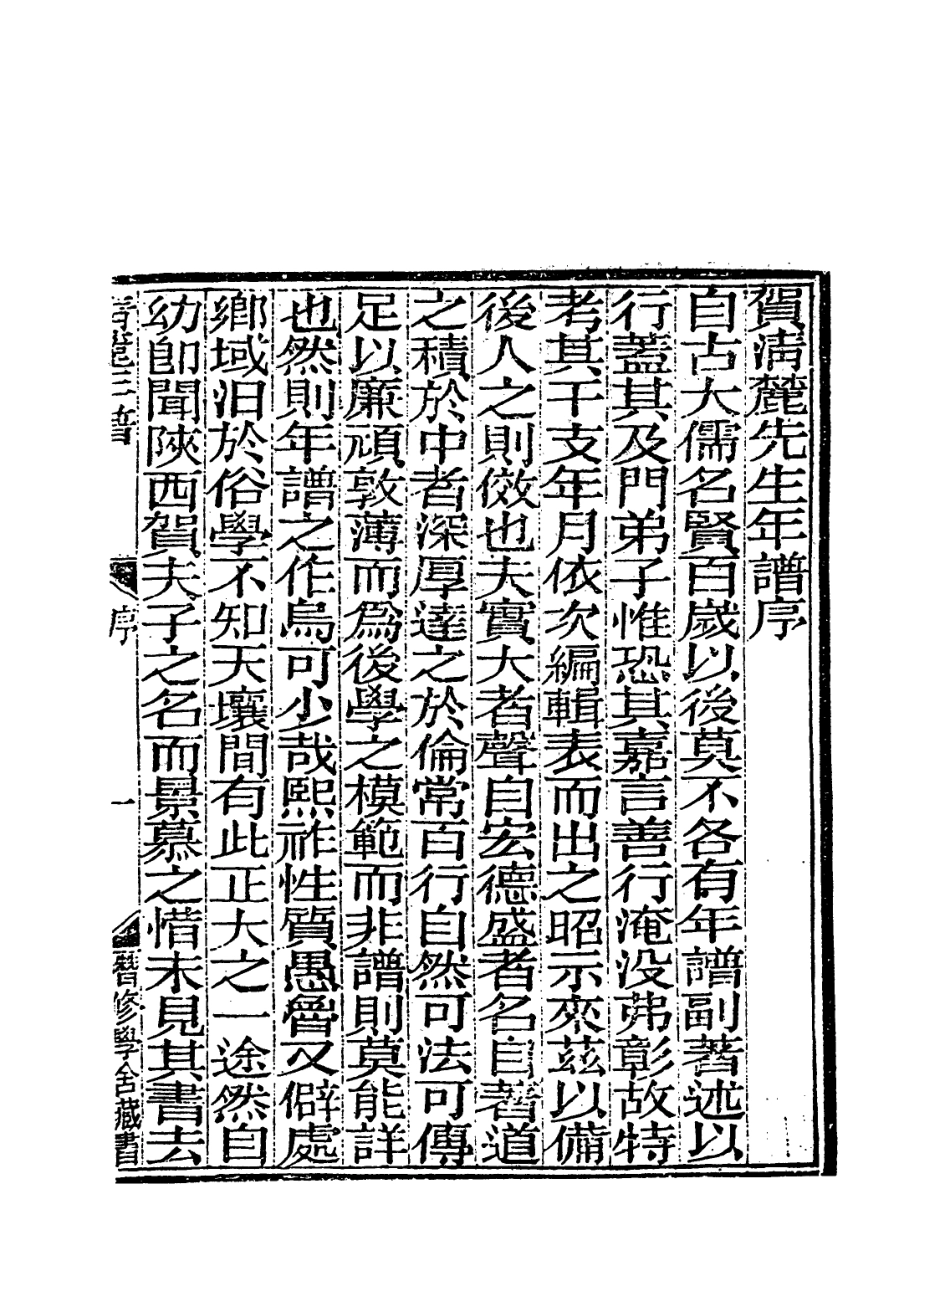 賀淸麓先生年譜序
自古大儒名賢百歲以後莫不各有年譜副著述以
行蓋其及門弟子惟恐其嘉言善行淹没弗彰故特
考其干支年月依次編輯表而出之昭示來茲以備
後人之則傚也夫實大者聲自宏德盛者名自著道
之積於中者深厚達之於倫常百行自然可法可傳
足以廉頑敦薄而爲後學之模範而非譜則莫能詳
也然則年譜之作烏可少哉熙祚性質愚魯又僻處
鄉域汨於俗學不知天壤間有此正大之一途然自
幼卽聞陝西賀夫子之名而景慕之惜未見其書去
淸麓年譜 序 一 修學舍藏書